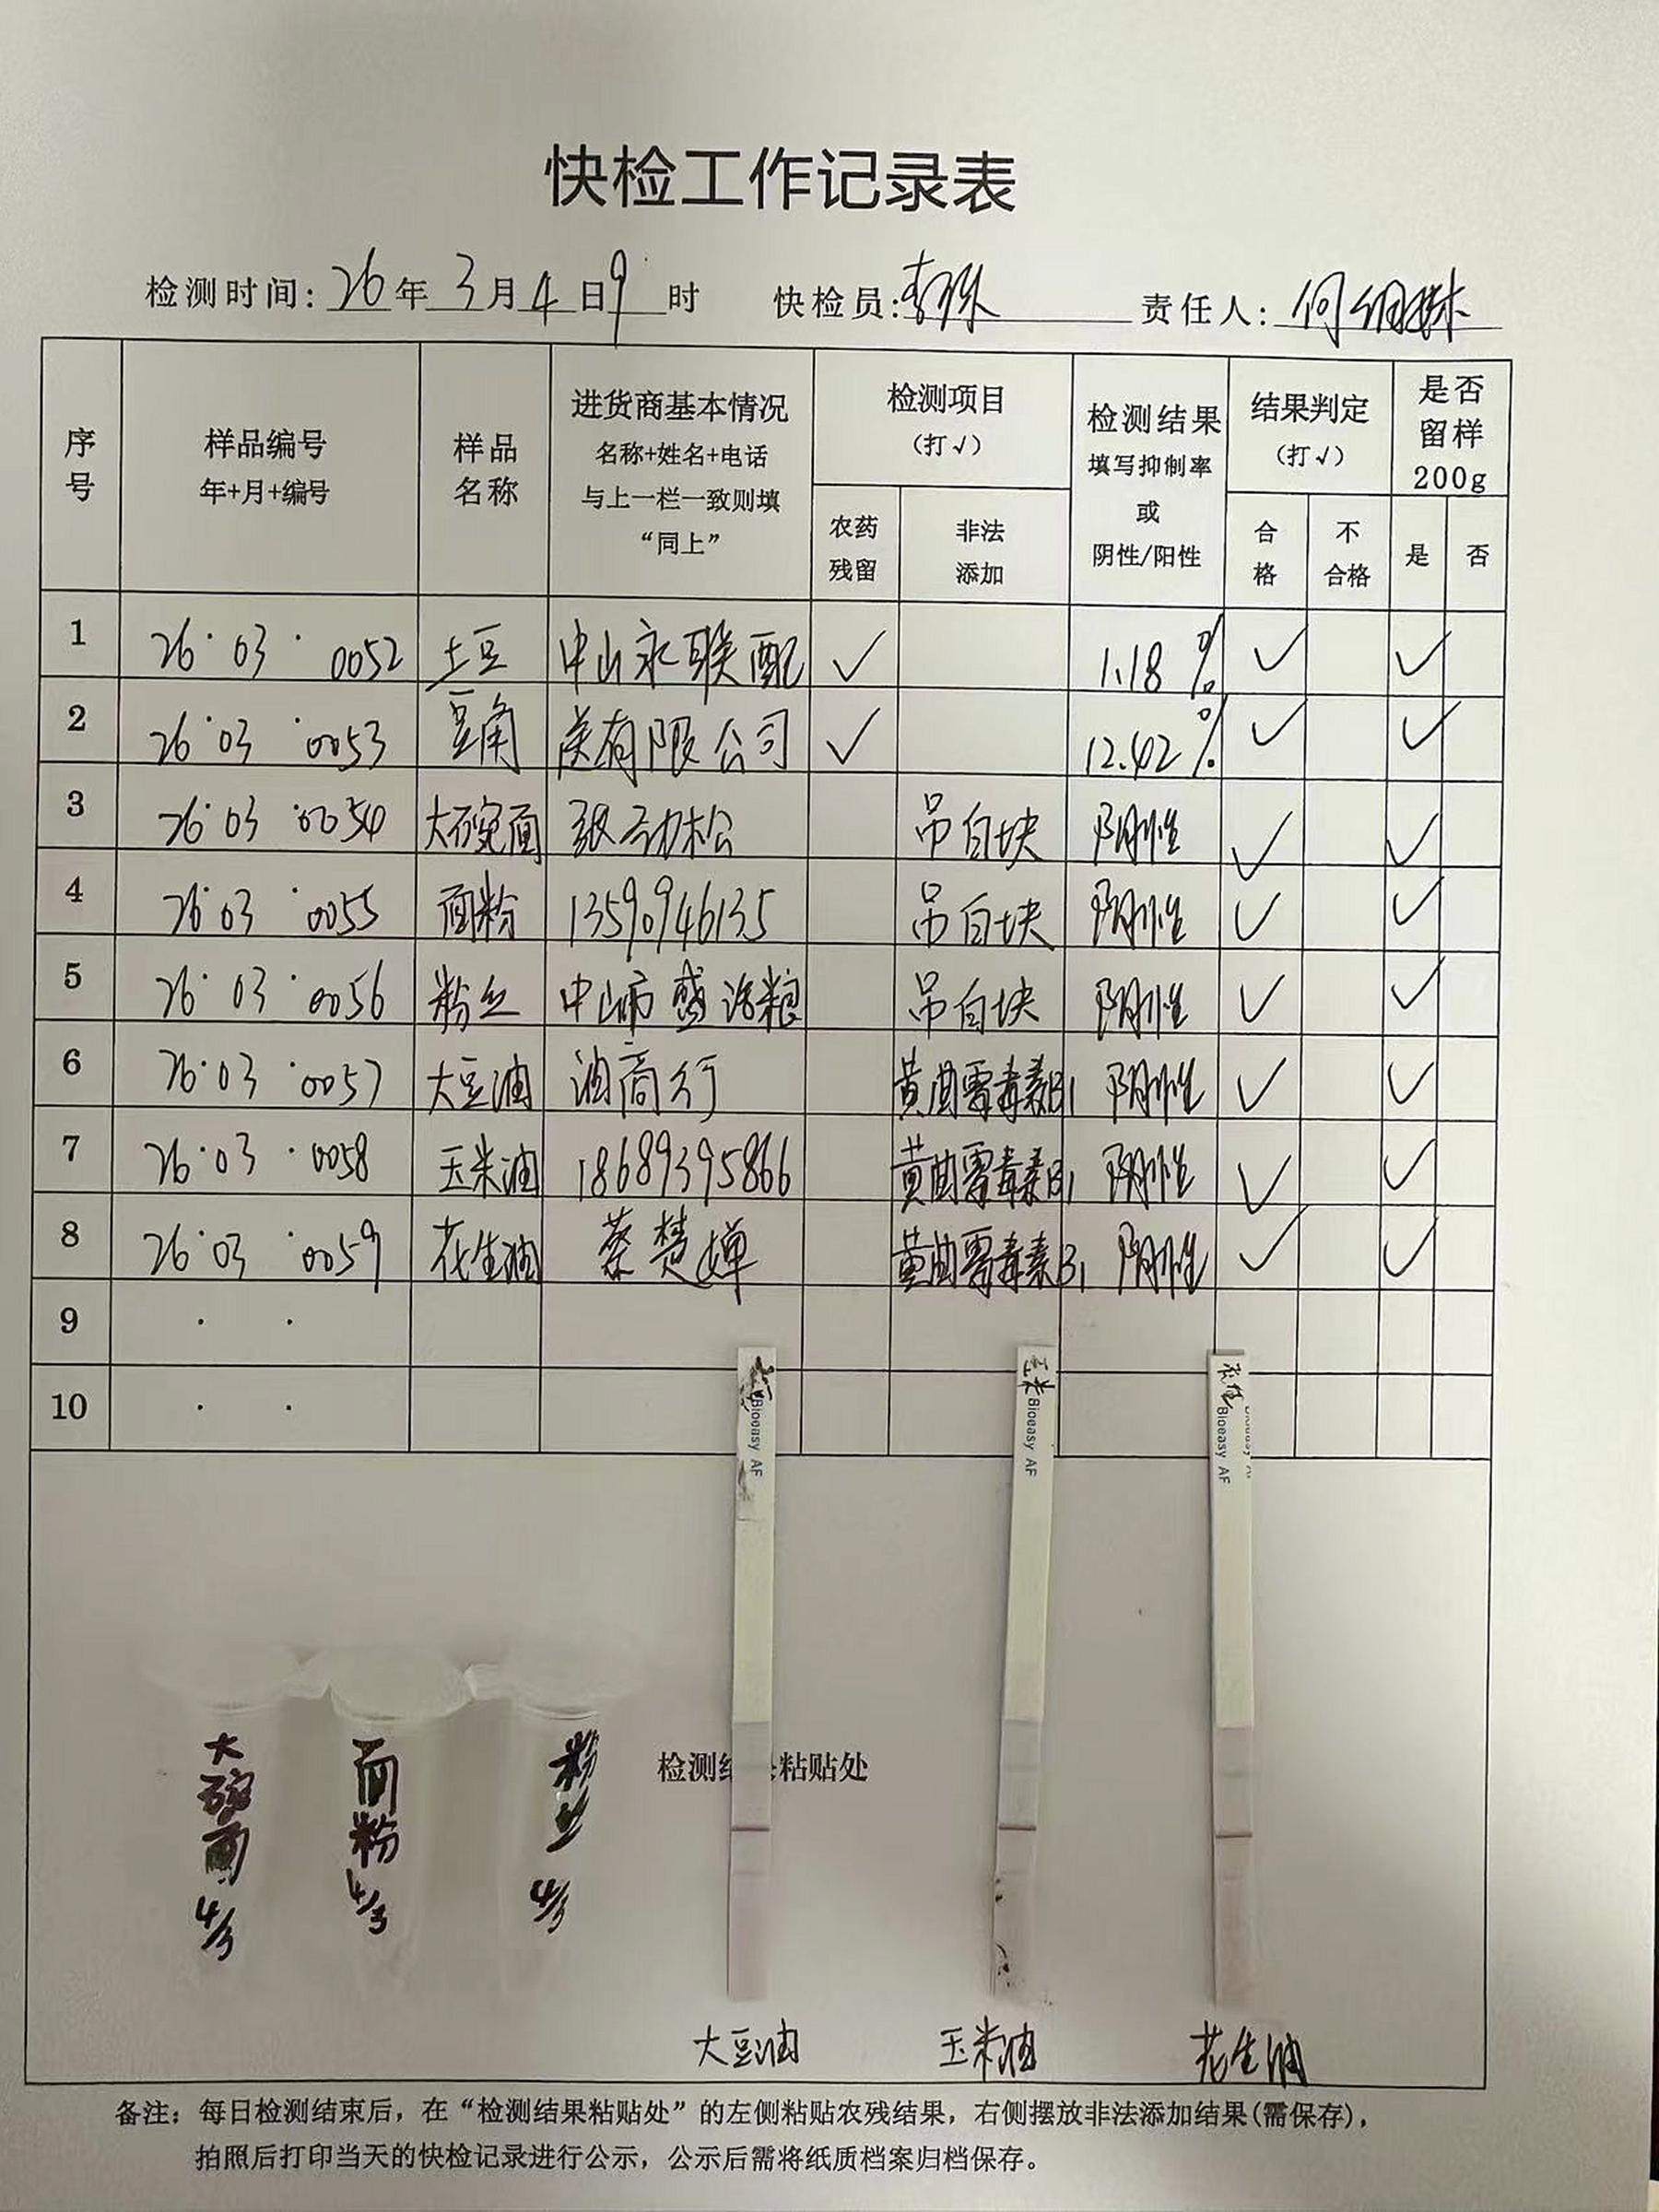 快检工作记录表
检测时间: 26年3月4日9时 快检员: 责任人: 何
序号 样品编号 年+月+编号 样品名称 进货商基本情况 名称+姓名+电话 与上一栏一致则填“同上” 检测项目 (打√) 农药残留 非法添加 检测结果 填写抑制率或阴性/阳性 结果判定 (打√) 合格 不合格 是否留样200g 是 否
1 26·03·0052 土豆 中山永联配 ✓ 1.18% ✓ ✓
2 26·03·0053 豆角 送有限公司 ✓ 12.42% ✓ ✓
3 26·03·0054 大碗面 张劲松 吊白块 阴性 ✓ ✓
4 26·03·0055 面粉 13590946135 吊白块 阴性 ✓ ✓
5 26·03·0056 粉丝 中山市盛 粮 吊白块 阴性 ✓ ✓
6 26·03·0057 大豆油 油商行 黄曲霉毒素B1 阴性 ✓ ✓
7 26·03·0058 玉米油 18689395866 黄曲霉毒素B1 阴性 ✓ ✓
8 26·03·0059 花生油 蔡楚婵 黄曲霉毒素B1 阴性 ✓ ✓
9 · ·
10 · ·
Bioeasy AF
玉米 Bioeasy AF
花生 Bioeasy AF
大碗面 4/3
面粉 4/3
粉丝 4/3
检测结果粘贴处
大豆油 玉米油 花生油
备注：每日检测结束后，在“检测结果粘贴处”的左侧粘贴农残结果，右侧摆放非法添加结果(需保存)，
拍照后打印当天的快检记录进行公示，公示后需将纸质档案归档保存。